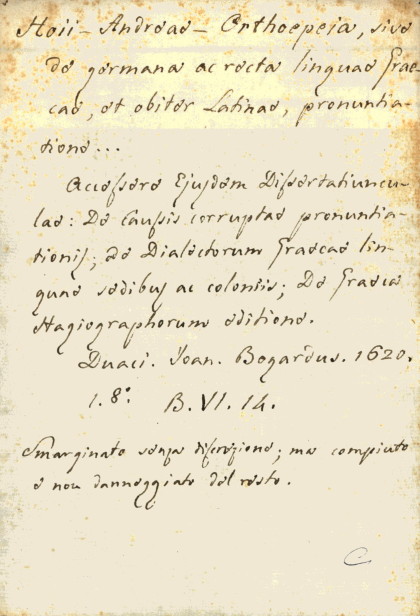 Hoii - Andreae - Orthoepeia, sive
de germana ac recta linguae Grae-
cae, et obiter Latinae, pronuntia-
tione...
Accessere Ejusdem Dissertatiuncu-
lae: De Caussis corruptae pronuntia-
tionis; de Dialectorum Graecae lin-
guae sedibus ac coloniis; De Graeca
Hagiographorum editione.
Duaci. Joan. Bogardus. 1620.
1. 8.° B. VI. 14.
Smarginato senza discrezione; ma compiuto
e non danneggiato del resto.
C